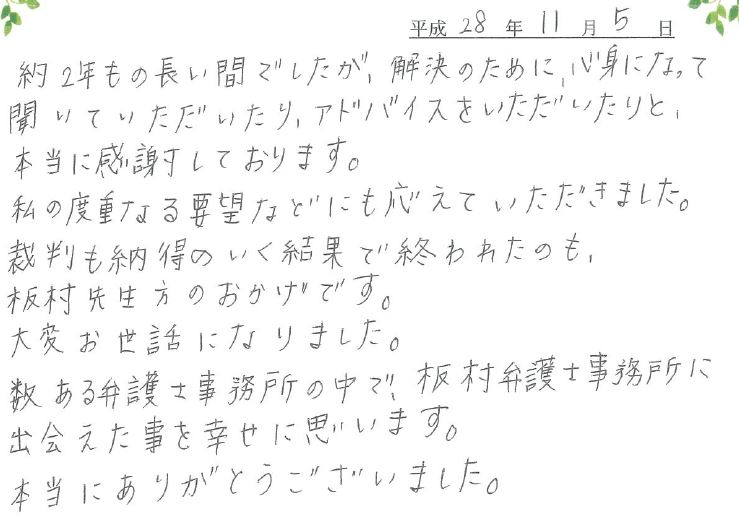 平成 28 年 11 月 5 日
約2年もの長い間でしたが、解決のために、心身になって
聞いていただいたり、アドバイスをいただいたりと、
本当に感謝しております。
私の度重なる要望などにも応えていただきました。
裁判も納得のいく結果で終われたのも、
板村先生方のおかげです。
大変お世話になりました。
数ある弁護士事務所の中で、板村弁護士事務所に
出会えた事を幸せに思います。
本当にありがとうございました。